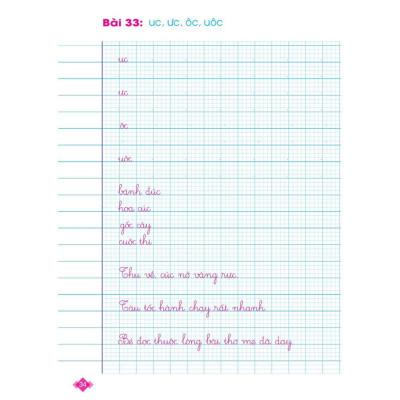 Bài 33: uc, ưc, ôc, uôc
uc
ưc
ôc
uôc
bánh đúc
hoa cúc
gốc cây
cuộc thi
Thu về, cúc nở vàng rực.
Tàu tốc hành chạy rất nhanh.
Bé đọc thuộc lòng bài thơ mẹ đã dạy.
34